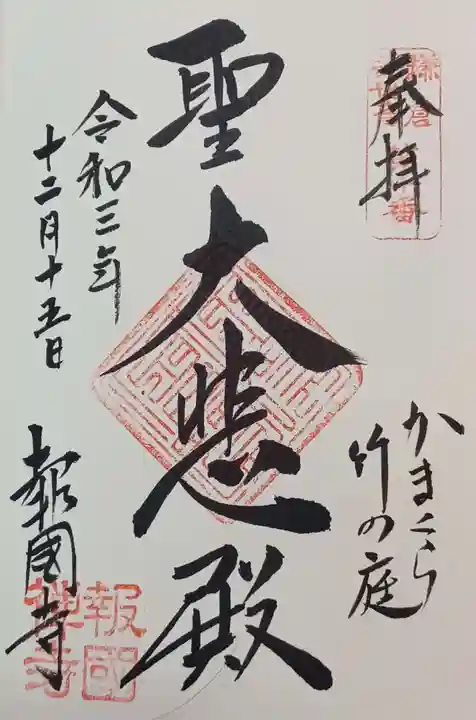 奉拝
かまくら
竹の庭
聖大悲殿
令和三年
十二月十五日
報國寺
報國
禅寺